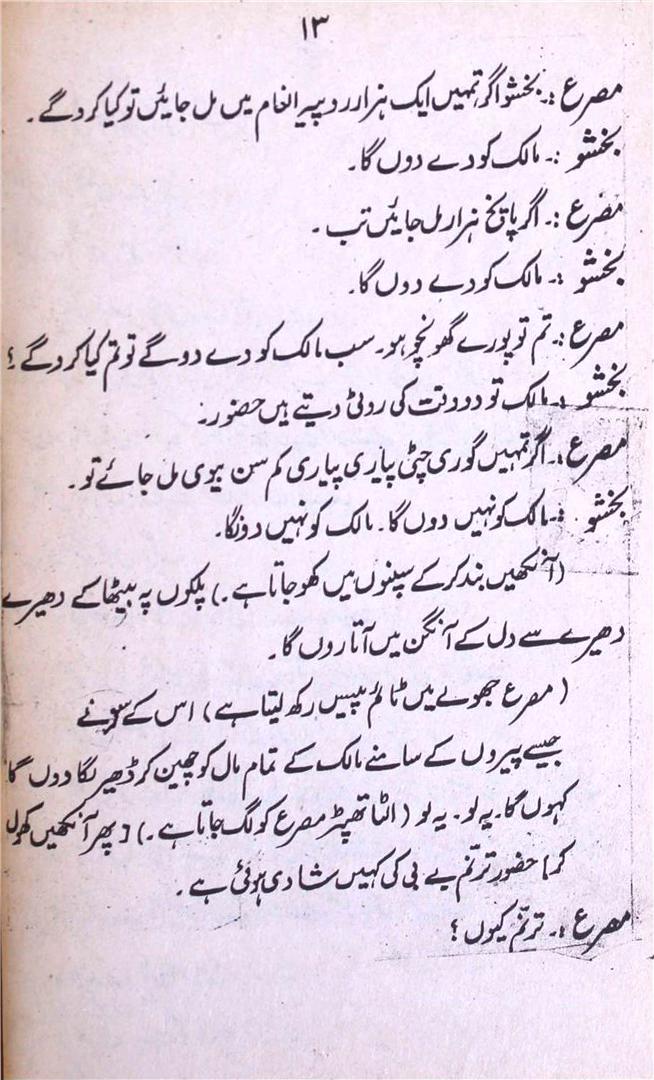 ۱۳
مصرع :۔ بخشو اگر تمہیں ایک ہزار روپیہ انعام میں مل جائیں تو کیا کروگے ۔
بخشو :۔ مالک کو دے دوں گا۔
مصرع :۔ اگر پانچ ہزار مل جائیں تب ۔
بخشو :۔ مالک کو دے دوں گا۔
مصرع :۔ تم تو پورے گھونچو ہو۔ سب مالک کو دے دوگے تو تم کیا کروگے ؟
بخشو :۔ مالک تو دو وقت کی روٹی دیتے ہیں حضور۔
مصرع :۔ اگر تمہیں گوری چٹی پیاری پیاری کم سن بیوی مل جائے تو ۔
بخشو :۔ مالک کو نہیں دوں گا۔ مالک کو نہیں دونگا۔
(آنکھیں بند کرکے سپنوں میں کھو جاتا ہے ۔) پلکوں پہ بیٹھا کے دھیرے
دھیرے سے دل کے آنگن میں اتاروں گا۔
( مصرع جھولے میں ٹائم پیس رکھ لیتا ہے ) اس کے سونے
جیسے پیروں کے سامنے مالک کے تمام مال کو چھین کر ڈھیر لگا دوں گا
کہوں گا۔ یہ لو۔ یہ لو ( الٹا تھپڑ مصرع کو لگ جاتا ہے ۔) [ پھر آنکھیں کھول
کر] حضور ترنم بے بی کی کہیں شادی ہوئی ہے ۔
مصرع :۔ ترنّم کیوں ؟